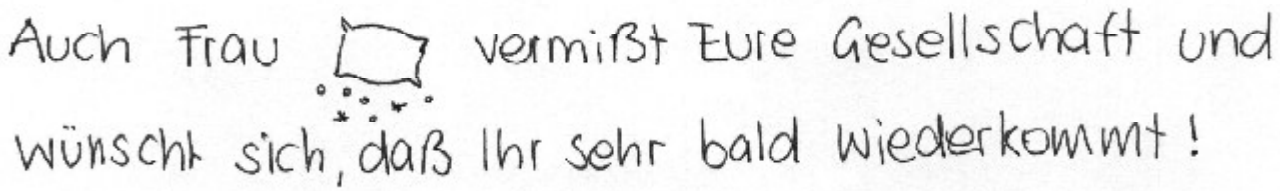 Auch Frau vermißt Eure Gesellschaft und
wünscht sich, daß Ihr sehr bald wiederkommt!